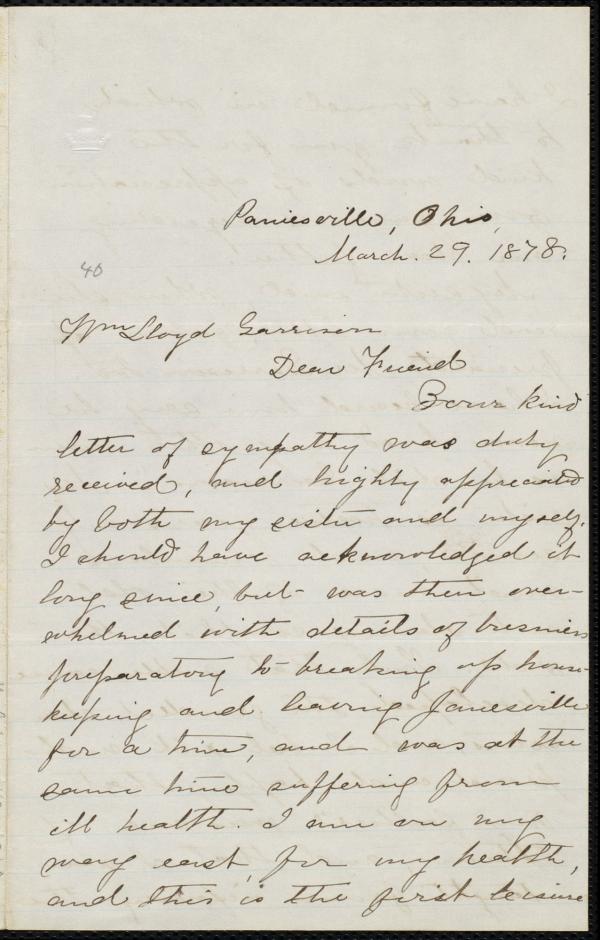 Painesville, Ohio,
March. 29. 1878.
40
Wm Lloyd Garrison
Dear Friend
Your kind
letter of sympathy was duly
received, and highly appreciated
by both my sister and myself.
I should have acknowledged it
long since, but was then over-
whelmed with details of business
preparatory to breaking up house-
keeping and leaving Janesville
for a time, and was at the
same time suffering from
ill health. I am on my
way east, for my health,
and this is the first leisure